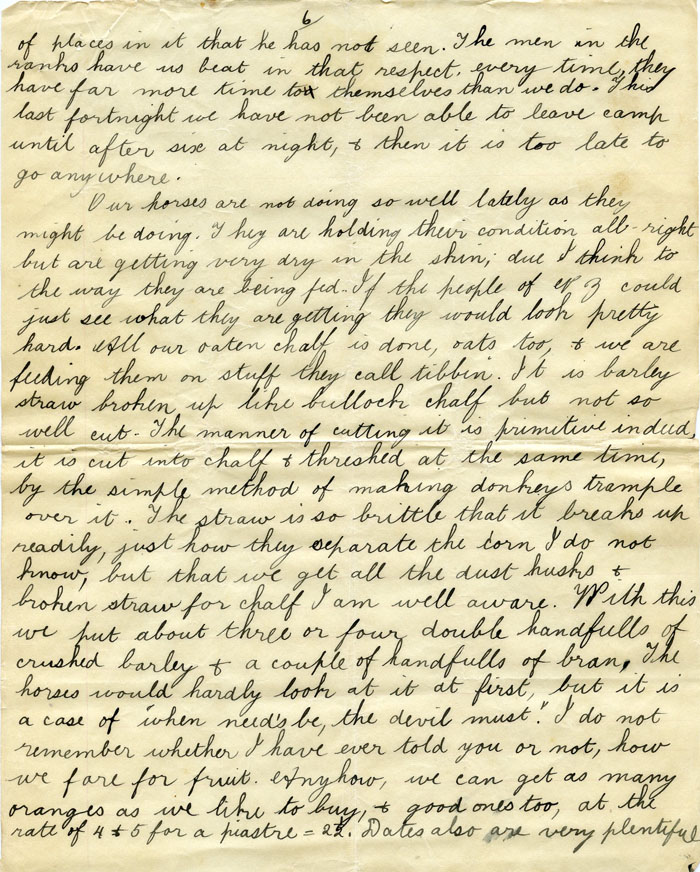 6
of places in it that he has not seen. The men in the
ranks have us beat in that respect, every time, they
have far more time to themselves than we do. This
last fortnight we have not been able to leave camp
until after six at night, & then it is too late to
go anywhere.
Our horses are not doing so well lately as they
might be doing. They are holding their condition all-right
but are getting very dry in the skin; due I think to
the way they are being fed. If the people of N Z could
just see what they are getting they would look pretty
hard. All our oaten chalf is done, oats too, & we are
feeding them on stuff they call tibbin. It is barley
straw broken up like bullock chalf but not so
well cut. The manner of cutting it is primitive indeed,
it is cut into chalf & threshed at the same time,
by the simple method of making donkeys trample
over it. The straw is so brittle that it breaks up
readily, just how they seperate the corn I do not
know, but that we get all the dust husks &
broken straw for chalf I am well aware. With this
we put about three or four double handfulls of
crushed barley & a couple of handfulls of bran. The
horses would hardly look at it at first, but it is
a case of "when need's be, the devil must." I do not
remember whether I have ever told you or not, how
we fare for fruit. Anyhow, we can get as many
oranges as we like to buy, & good ones too, at the
rate of 4 & 5 for a piastre = 2½. Dates also are very plentiful